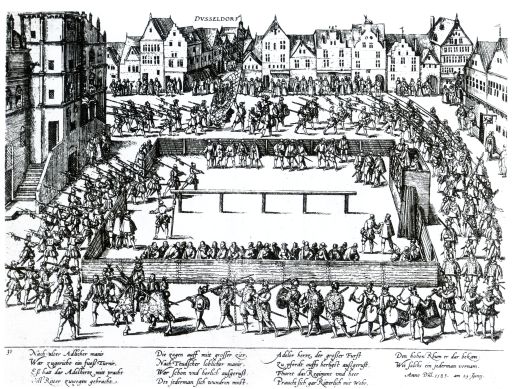 DVSSELDORF
Nach alter Adlicher manir
War zugericht ein
Es hat der mit pracht
Reiter zuwegen gebracht.
Die zogen auff mit grosser zier,
Nach Teutscher loblicher manir,
Wer schon und herlich außgerust
Des jederman sich wundren must.
der grosser Furst
Zu pferdt auffs herligst außgerust.
das Regiment und heer
sich gar Ritterlich mit Wehr.
Den hohen Rhum er da bekam
Wie solchs ein jederman vernam.
Anno Dñi 1585. am 19 Juny.